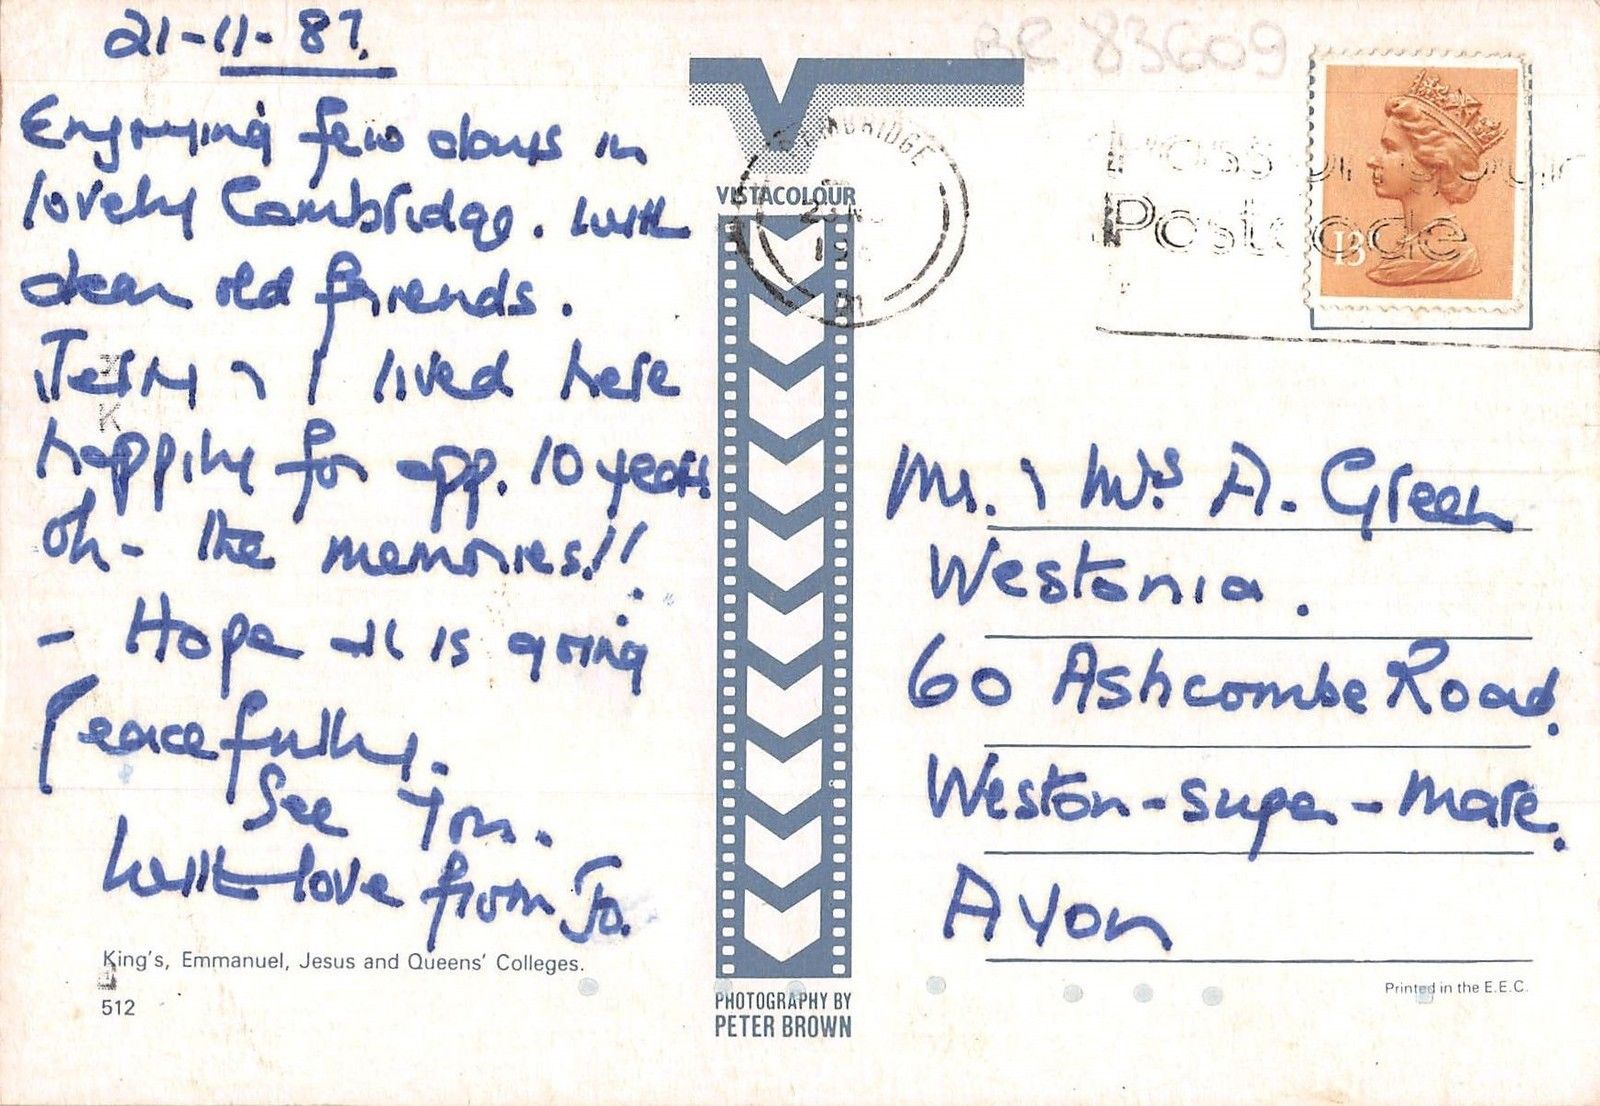 21-11-87.
Enjoying few days in
lovely Cambridge. With
dear old friends.
Terry & I lived here
happily for app. 10 years
oh - the memories!!
- Hope all is going
Peacefully.
See You.
With love from Jo.
King's, Emmanuel, Jesus and Queens' Colleges.
512
VISTACOLOUR
PHOTOGRAPHY BY
PETER BROWN
BR 83609
CAMBRIDGE
Postcode
13
Mr. & Mrs A. Green
Westonia.
60 Ashcombe Road.
Weston-super-Mare.
Avon
Printed in the E.E.C.